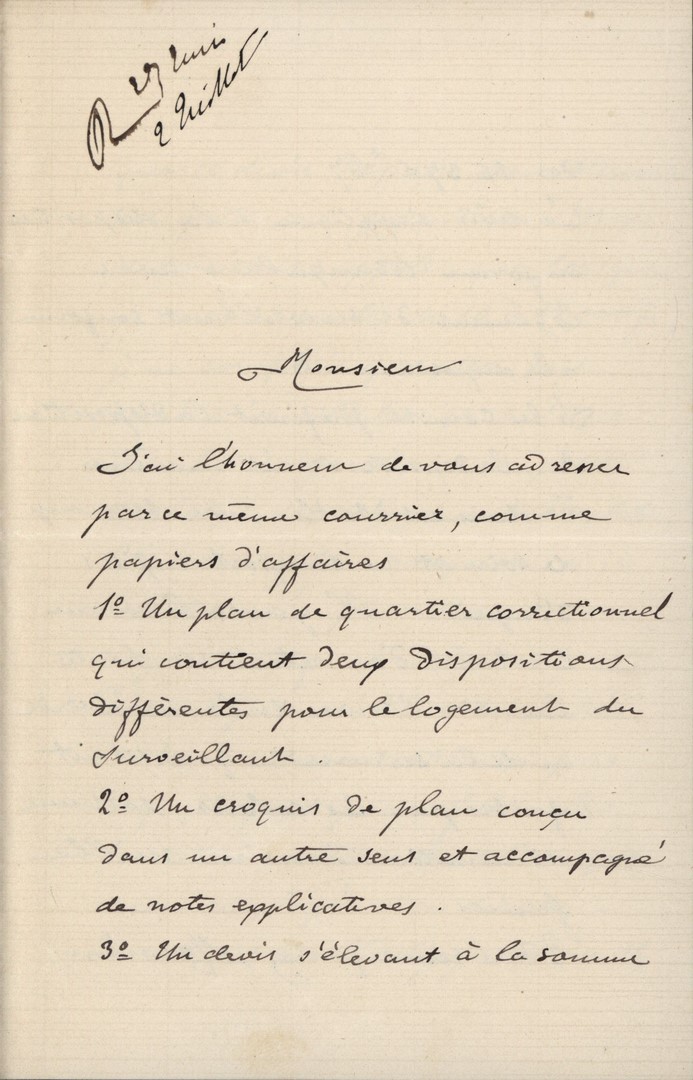 R 25 Juin
2 Juillet
Monsieur
J'ai l'honneur de vous adresser
par ce même courrier, comme
papiers d'affaires
1º Un plan de quartier correctionnel
qui contient deux dispositions
différentes pour le logement du
surveillant.
2º Un croquis de plan conçu
dans un autre sens et accompagné
de notes explicatives.
3º Un devis s'élevant à la somme